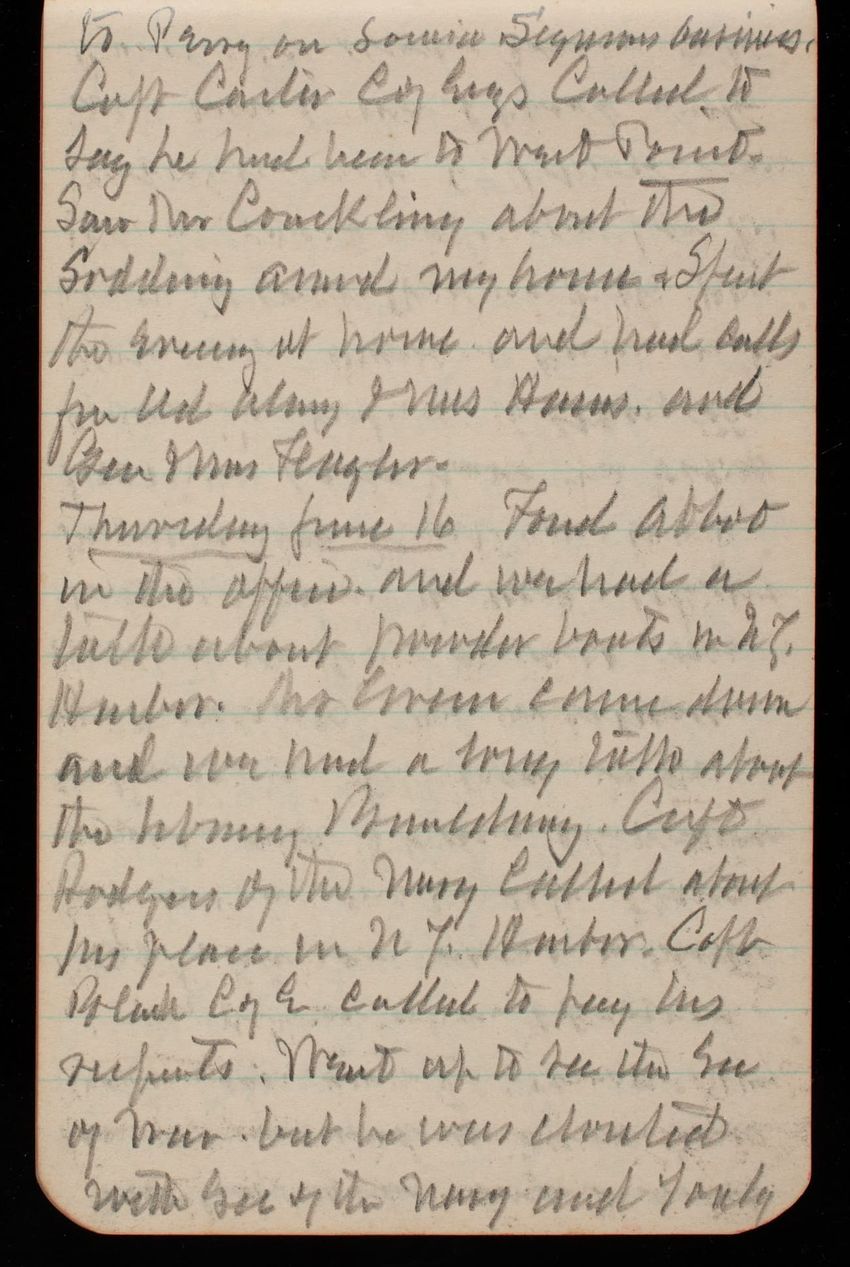 to Perry on Louisa Segurs business.
Capt Carter C of Engs Called to
say he had been to West Point.
Saw Mr Conckling about the
Sodding around my house & Spent
the evening at home and had calls
fr Ed & Mrs Harris. and
Gen & Mrs Flagler.
Thursday June 16 Found Abbot
in the office. and we had a
talk about powder boats in N.Y.
Harbor. Mr Green came down
and we had a long talk about
the library Building. Capt
Rodgers of the Navy Called about
his place in N.Y. Harbor. Capt
Black C of E called to pay his
respects. Went up to see the Sec
of War. but he was closeted
with Sec of the Navy and